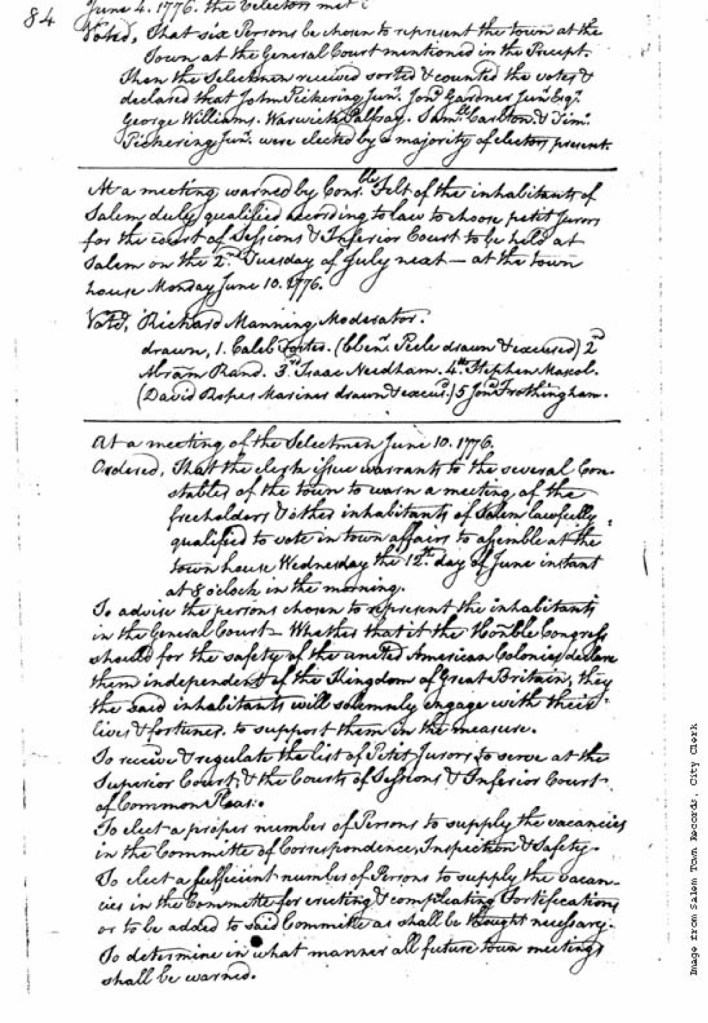 84
June 4. 1776. The Electors met
Voted, That six Persons be chosen to represent the town at the
Town at the General Court mentioned in the Precept.
Then the Selectmen received sorted & counted the votes &
declared that John Pickering Junr. Jona. Gardner Junr. Esqr.
George Williams. Warwick Palfray. Samll. Carlton. & Timo.
Pickering Junr. were elected by a majority of electors present.
At a meeting warned by Consble. Felt of the inhabitants of
Salem duly qualified according to law to choose petit Jurors
for the court of Sessions & Inferior Court to be held at
Salem on the 2nd. Tuesday of July next — at the town
house Monday June 10. 1776.
Voted, Richard Manning Moderator.
drawn, 1. Caleb Fortes. (Ebenr. Peele drawn & excused) 2nd
Abram Rand. 3rd Isaac Needham. 4th Stephen Mascol.
(David Ropes Mariner drawn & excusd.) 5 Jona. Frothingham.
At a meeting of the Selectmen June 10. 1776.
Ordered, That the clerk issue warrants to the several Con-
stables of the town to warn a meeting of the
freeholders & other inhabitants of Salem lawfully
qualified to vote in town affairs to assemble at the
town house Wednesday the 12th. day of June instant
at 8 o'clock in the morning.
To advise the persons chosen to represent the inhabitants
in the General Court — Whether that if the Honble Congress
should for the safety of the united American Colonies declare
them independent of the Kingdom of Great Britain, they
the said inhabitants will solemnly engage with their
lives & fortunes, to support them in the measure.
To receive & regulate the list of Petit Jurors to serve at the
Superior Court, & the Courts of Sessions & Inferior Court
of Common Pleas.
To elect a proper number of Persons to supply the vacancies
in the Committe of Correspondence, Inspection & Safety.
To elect a sufficient number of Persons to supply the vacan-
cies in the Committe for erecting & compleating Fortifications
or to be added to said Committe as shall be thought necessary.
To determine in what manner all future town meetings
shall be warned.
Image from Salem Town Records, City Clerk